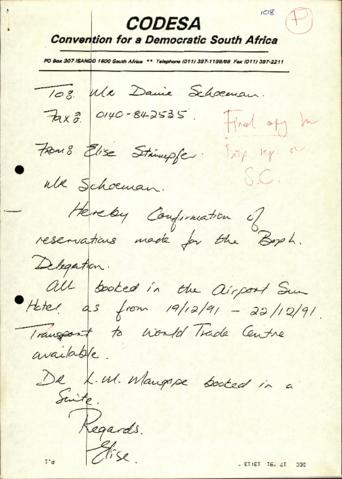 108
CODESA
Convention for a Democratic South Africa
PO Box 307 ISANDO 1600 South Africa ** Telephone (011) 397-1198/99 Fax (011) 397-2211
To: Mr Danie Schoeman.
Fax: 0140-842535
Final copy for
From: Elise Stümpfer.
S.C.
Mr Schoeman.
Hereby Confirmation of
reservations made for the Boph.
Delegation.
All booked in the Airport Sun
Hotel as from 19/12/91 - 22/12/91.
Transport to World Trade Centre
available.
Dr L.M. Mangope booked in a
Suite.
Regards.
Elise.
P.1
DEC 17 '91 13:13